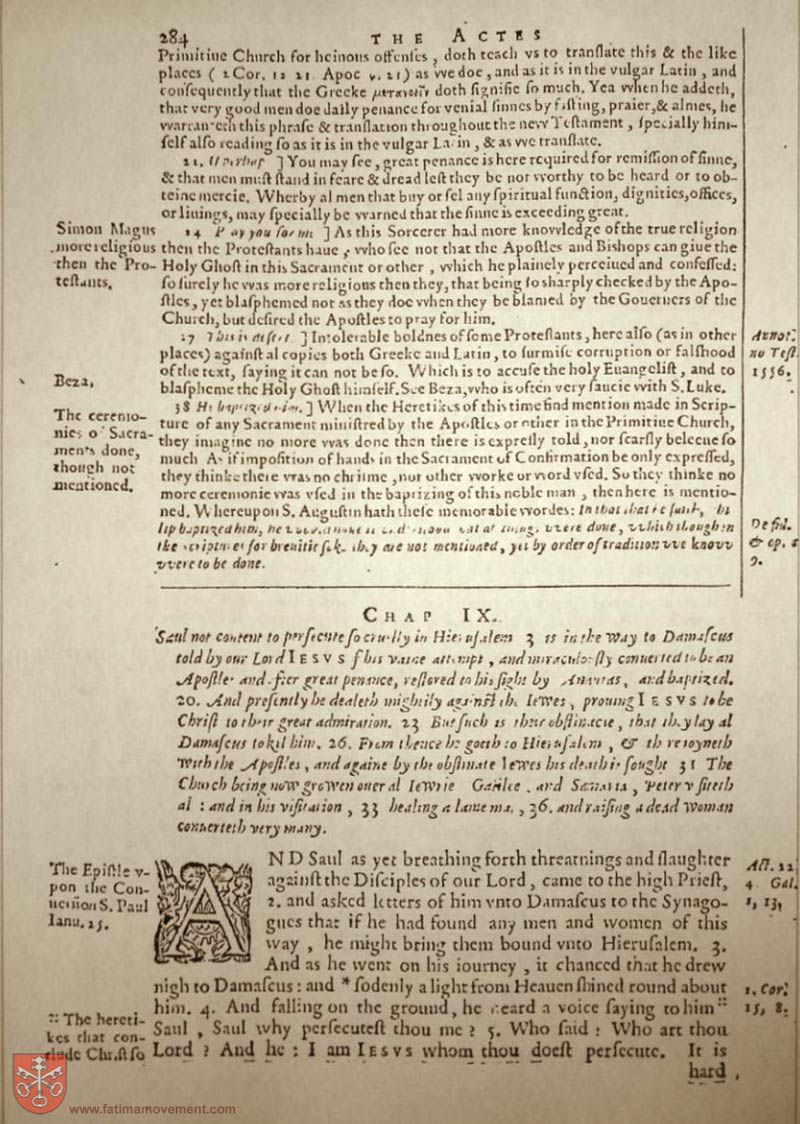 284 THE ACTES
Primitiue Church for heinous offenses, doth teach vs to tranſlate this & the like
places ( 2 Cor. 12 21 Apoc 21) as we doe, and as it is in the vulgar Latin, and
conſequently that the Greeke doth ſigniſie ſo much. Yea when he addeth,
that very good men doe daily penance for venial ſinnes by faſting, praier, & almes, he
warranteth this phraſe & tranſlation throughout the new Teſtament, ſpecially him-
ſelf alſo reading ſo as it is in the vulgar Latin, & as we tranſlate.
] You may ſee, great penance is here required for remiſſion of ſinne,
& that men muſt ſtand in feare & dread leſt they be not worthy to be heard or to ob-
teine mercie. Wherby al men that buy or ſel any ſpiritual function, dignities, offices,
or liuings, may ſpecially be warned that the ſinne is exceeding great.
Simon Magus
more religious
then the Pro-
teſtants.
] As this Sorcerer had more knowledge of the true religion
then the Proteſtants haue, who ſee not that the Apoſtles and Bishops can giue the
Holy Ghoſt in this Sacrament or other, which he plainely perceiued and confeſſed:
ſo ſurely he was more religious then they, that being ſo sharply checked by the Apo-
ſtles, yet blaſphemed not as they doe when they be blamed by the Gouerners of the
Church, but deſired the Apoſtles to pray for him.
] Intolerable boldnes of ſome Proteſtants, here alſo (as in other
places) againſt al copies both Greeke and Latin, to ſurmiſe corruption or falſhood
of the text, ſaying it can not be ſo. Which is to accuſe the holy Euangeliſt, and to
blaſpheme the Holy Ghoſt himſelf. See Beza, who is often very ſaucie with S. Luke.
Annot.
no Teſt.
1556.
Beza,
The ceremo-
nies of Sacra-
ments done,
though not
mentioned.
38 He baptized him.] When the Heretikes of this time find mention made in Scrip-
ture of any Sacrament miniſtred by the Apoſtles or other in the Primitiue Church,
they imagine no more was done then there is expreſly told, nor ſcarſly beleeue ſo
much As if impoſition of hands in the Sacrament of Confirmation be only expreſſed,
they thinke there was no chriſme, nor other worke or word vſed. So they thinke no
more ceremonie was vſed in the baptizing of this noble man, then here is mentio-
ned. Whereupon S. Auguſtin hath theſe memorable wordes: In that that he ſaith,
baptized him, were done, which though in
the ſcriptures for breuitie ſake they are not mentioned, yet by order of tradition we know
were to be done.
De fid.
& op. c
9.
CHAP IX.
Saul not content to perſecute ſo cruelly in Hieruſalem 3 is in the way to Damaſcus
told by our Lord IESVS of his vaine attempt, and miraculouſly conuerted to be an
Apoſtle: and after great penance, reſtored to his ſight by Ananias, and baptized.
20. And preſently he dealeth mightily againſt the Iewes, prouing IESVS to be
Chriſt to their great admiration. 23 But ſuch is their obſtinacie, that they lay al
Damaſcus to kil him. 26. From thence he goeth to Hieruſalem, & there ioyneth
with the Apoſtles, and againe by the obſtinate Iewes his death is ſought 31 The
Church being now growen ouer al Iewrie Galilee, and Samaria, Peter viſiteth
al : and in his viſitation, 33 healing a lame man, 36. and raiſing a dead woman
conuerteth very many.
The Epiſtle v-
pon the Con-
uerſion S. Paul
Ianu. 25.
AND Saul as yet breathing forth threatnings and ſlaughter
againſt the Diſciples of our Lord, came to the high Prieſt,
2. and asked letters of him vnto Damaſcus to the Synago-
gues that if he had found any men and women of this
way, he might bring them bound vnto Hieruſalem. 3.
And as he went on his iourney, it chanced that he drew
nigh to Damaſcus: and * ſodenly a light from Heauen ſhined round about
him. 4. And falling on the ground, he heard a voice ſaying to him ::
Saul, Saul why perſecuteſt thou me? 5. Who ſaid: Who art thou
Lord? And he: I am IESVS whom thou doeſt perſecute. It is
hard,
Act. 22
4. Gal.
1, 13,
1. Cor.
15, 8.
:: The hereti-
kes that con-
clude Chriſt ſo
www.fatimamovement.com